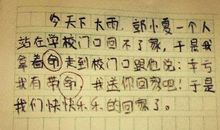 今天下大雨，郭小夏一个人
站在学校门口回不了家，于是我
拿着命走到校门口跟他说：于亏
我有革命，我送你回家吧！于是
我们快快乐乐的回家了。